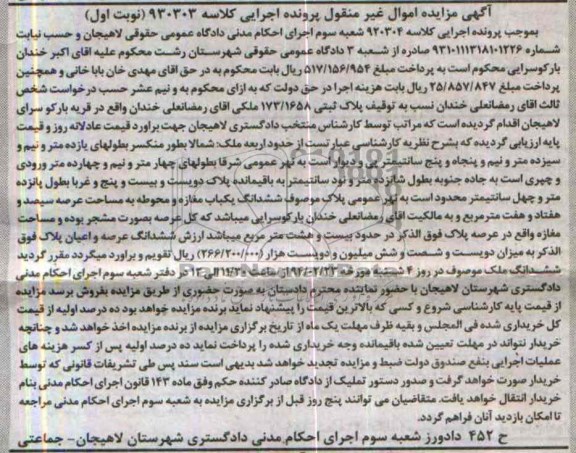 آگهی مزایده اموال غیر منقول پرونده اجرایی کلاسه ۹۳۰۳۰۳ (نوبت اول)
بموجب پرونده اجرایی کلاسه ۹۲۰۳۰۴ شعبه سوم اجرای احکام مدنی دادگاه عمومی حقوقی لاهیجان و حسب نیابت
شماره ۹۳۱۰۱۱۱۳۱۸۱۰۱۲۲۶ صادره از شعبه ۳ دادگاه عمومی حقوقی شهرستان رشت محکوم علیه اقای اکبر خندان
بارکوسرایی محکوم است به پرداخت مبلغ ۵۱۷/۱۵۶/۹۵۴ ریال بابت محکوم به در حق اقای مهدی خان بابا خانی و همچنین
پرداخت مبلغ ۲۵/۸۵۷/۸۴۷ ریال بابت هزینه اجرا در حق دولت که به ازای محکوم به و نیم عشر حسب درخواست شخص
ثالث اقای رمضانعلی خندان نسب به توقیف پلاک ثبتی ۱۷۳/۱۶۵۸ ملکی اقای رمضانعلی خندان واقع در قریه بارکو سرای
لاهیجان اقدام گردیده است که مراتب توسط کارشناس منتخب دادگستری لاهیجان جهت براورد قیمت عادلانه روز و قیمت
پایه ارزیابی گردیده که بشرح نظریه کارشناسی عبارتست از حدود اربعه ملک: شمالا بطور منکسر بطولهای یازده متر و نیم و
سیزده متر و نیم و پنجاه و پنج سانتیمتر پی و دیوار است به نهر عمومی شرقا بطولهای چهار متر و نیم و چهارده متر ورودی
و چپری است به جاده جنوبه بطول شانزده متر و نود سانتیمتر به باقیمانده پلاک دویست و بیست و پنج و غربا بطول پانزده
متر و چهل سانتیمتر محدود است به نهر عمومی پلاک موصوف ششدانگ یکباب مغازه و محوطه به مساحت عرصه سیصد و
هفتاد و هفت مترمربع و به مالکیت اقای رمضانعلی خندان بارکوسرایی میباشد که کل عرصه بصورت مشجر بوده و مساحت
مغازه واقع در عرصه پلاک فوق الذکر در حدود بیست و هشت متر مربع میباشد ارزش ششدانگ عرصه و اعیان پلاک فوق
الذکر به میزان دویست و شصت و شش میلیون و دویست هزار (۲۶۶/۲۰۰/۰۰۰) ریال تقویم و براورد میگردد مقرر گردید
ششدانگ ملک موصوف در روز ۴ شنبه مورخه ۹۴/۰۲/۲۳ از ساعت ۱۱/۳۰ الی ۱۲ در دفتر شعبه سوم اجرای احکام مدنی
دادگستری شهرستان لاهیجان با حضور نماینده محترم دادستان به صورت حضوری از طریق مزایده بفروش برسد مزایده
از قیمت پایه کارشناسی شروع و کسی که بالاترین قیمت را پیشنهاد نماید برنده مزایده خواهد بود ده درصد اولیه از قیمت
کل خریداری شده فی المجلس و بقیه ظرف مهلت یک ماه از تاریخ برگزاری مزایده از برنده مزایده اخذ خواهد شد و چنانچه
خریدار نتواند در مهلت تعیین شده باقیمانده وجه خریداری شده را پرداخت نماید ده درصد اولیه پس از کسر هزینه های
عملیات اجرایی بنفع صندوق دولت ضبط و مزایده تجدید خواهد شد بدیهی است سند پس طی تشریفات قانونی که توسط
خریدار صورت خواهد گرفت و صدور دستور تملیک از دادگاه صادر کننده حکم وفق ماده ۱۴۳ قانون اجرای احکام مدنی بنام
خریدار انتقال خواهد یافت. متقاضیان می توانند پنج روز قبل از برگزاری مزایده به شعبه سوم اجرای احکام مدنی مراجعه
تا امکان بازدید آنان فراهم گردد.
ح ۴۵۲ دادورز شعبه سوم اجرای احکام مدنی دادگستری شهرستان لاهیجان- جماعتی